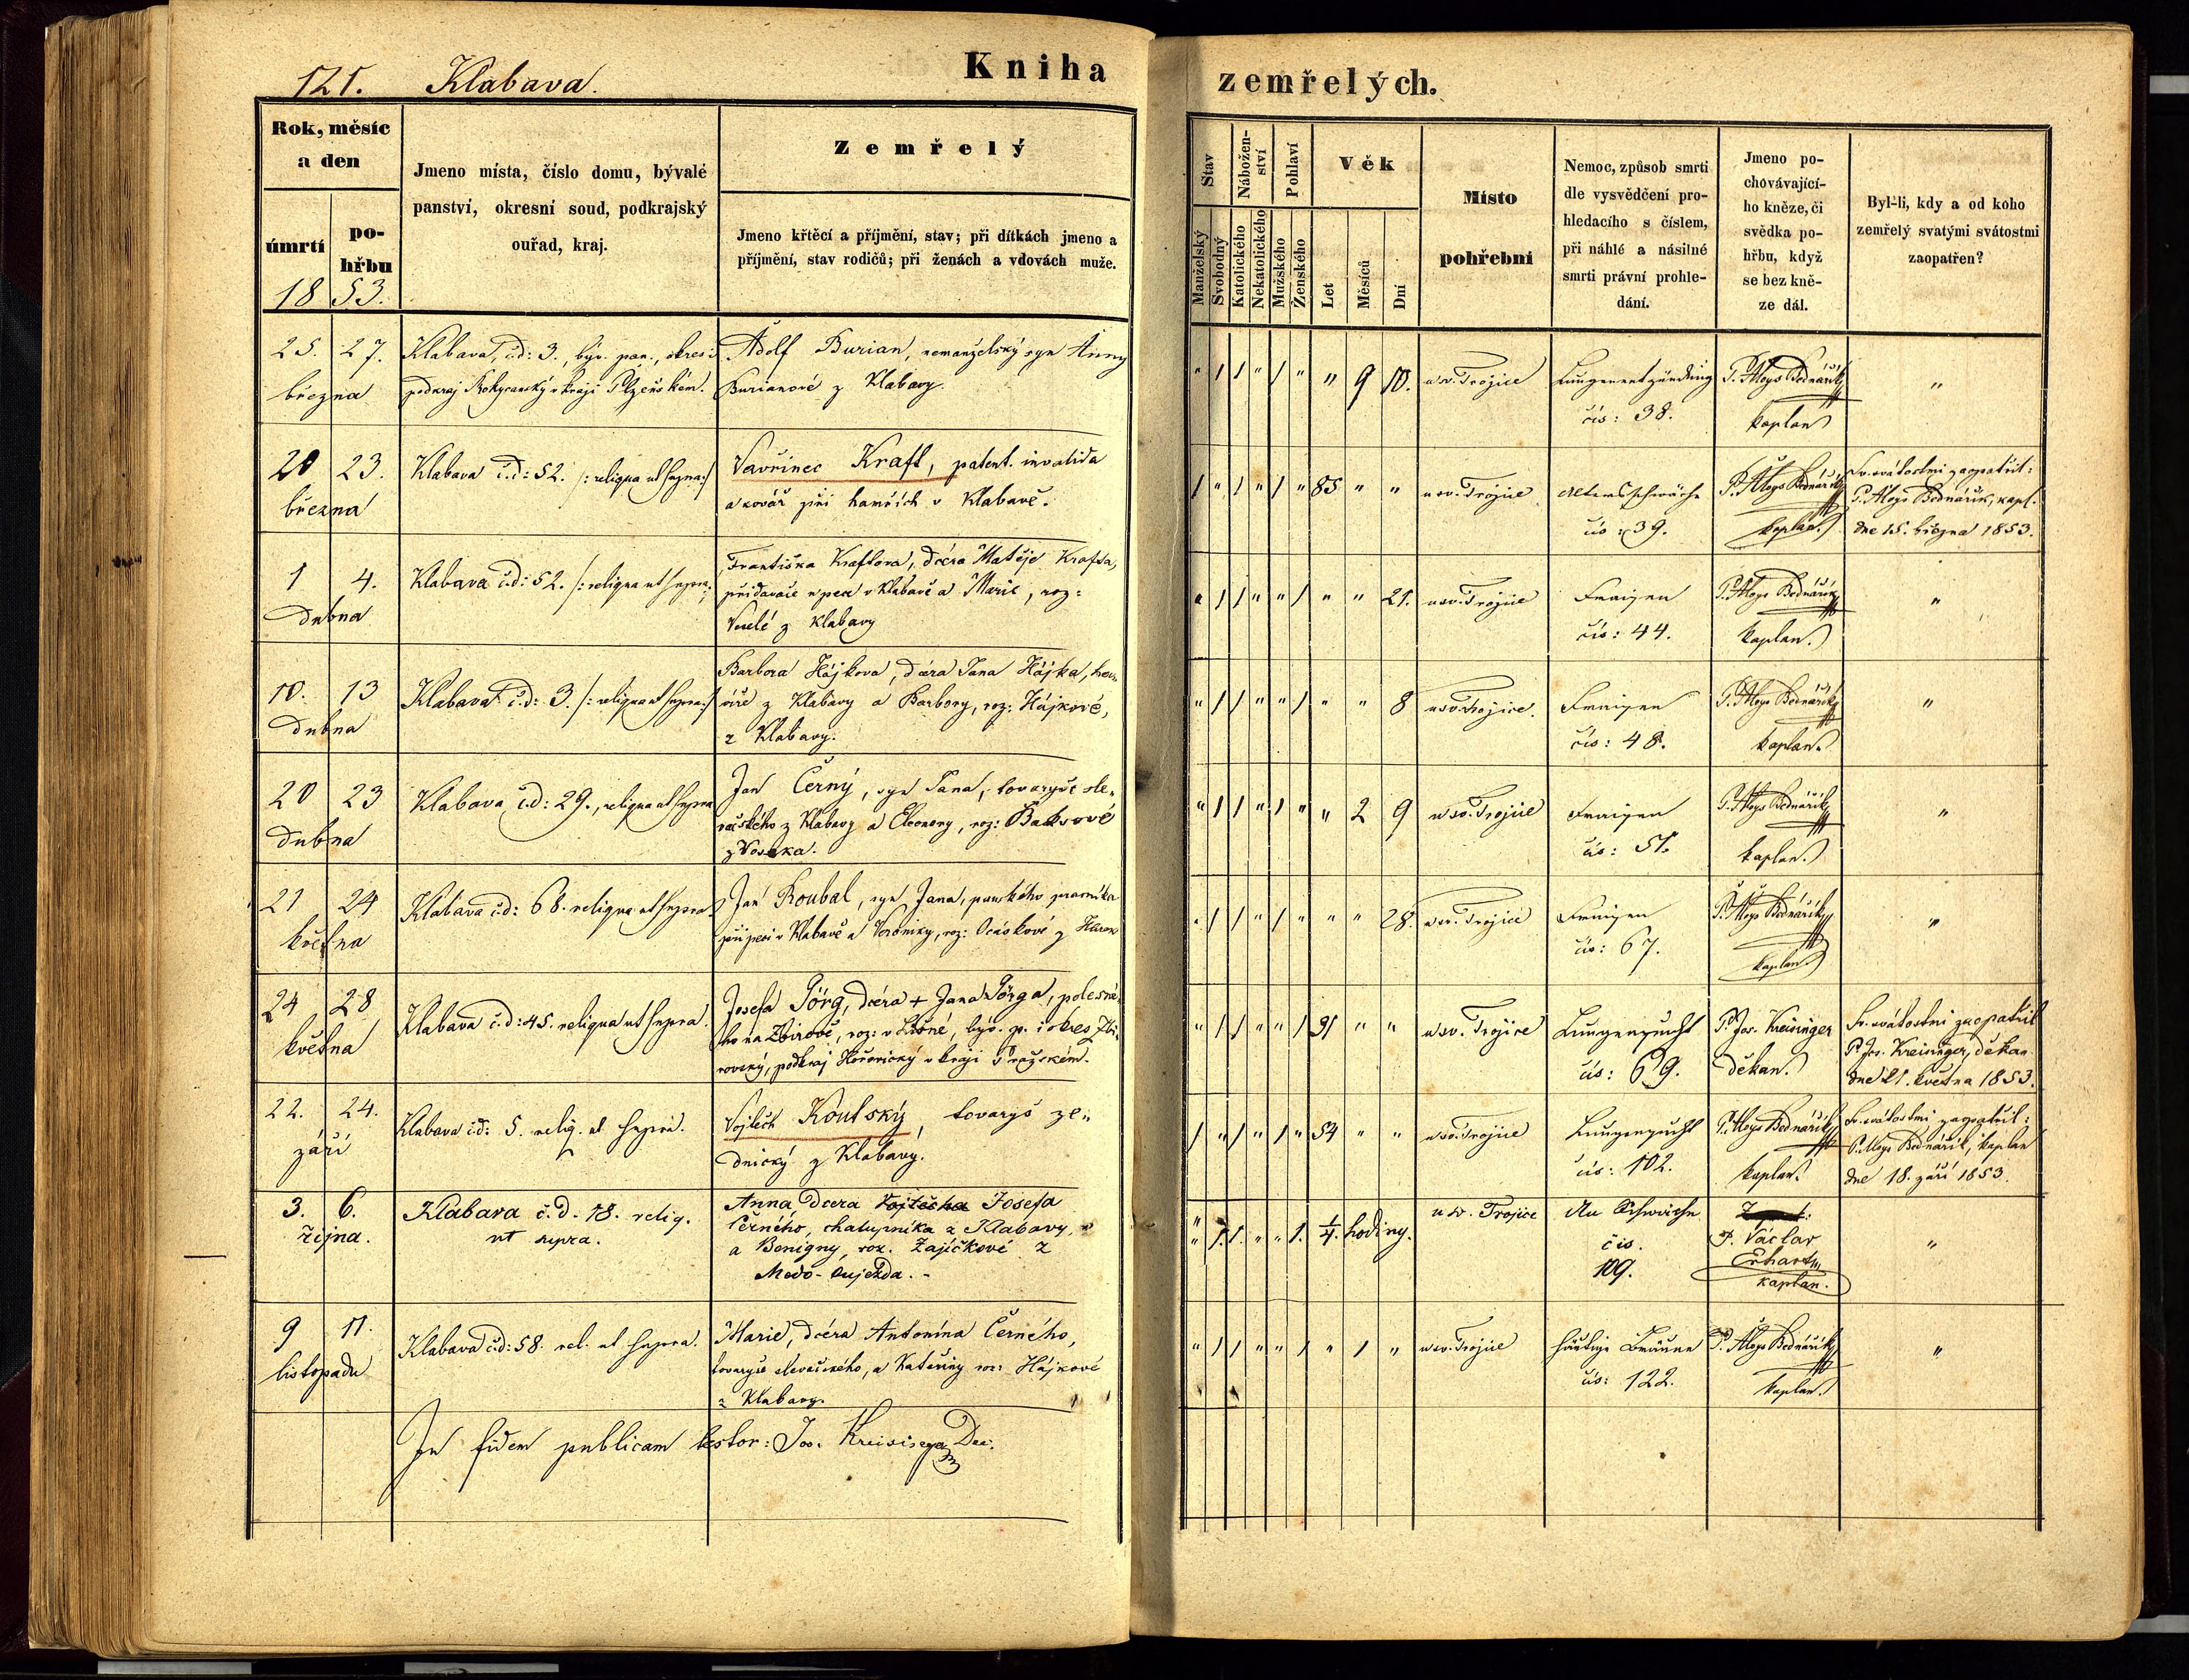 121. Klabava.
Kniha
zemřelých.
Rok, měsíc
a den
úmrtí
po-
hřbu
18 53.
Jmeno místa, číslo domu, bývalé
panství, okresní soud, podkrajský
ouřad, kraj.
Zemřelý
Jmeno křtěcí a příjmění, stav; při dítkách jmeno a
příjmění, stav rodičů; při ženách a vdovách muže.
Stav
Manželský
Svobodný
Nábožen-
ství
Katolického
Nekatolického
Pohlaví
Mužského
Ženského
Věk
Let
Měsíců
Dní
Místo
pohřební
Nemoc, způsob smrti
dle vysvědčení pro-
hledacího s číslem,
při náhlé a násilné
smrti právní prohle-
dání.
Jmeno po-
chovávající-
ho kněze, či
svědka po-
hřbu, když
se bez kně-
ze dál.
Byl-li, kdy a od koho
zemřelý svatými svátostmi
zaopatřen?
25. 27.
března
Klabava, č.d: 3., býv. pan., okres i
podkraj Rokycanský v kraji Plzeňském.
Adolf Burian, nemanželský syn Anny
Burianové z Klabavy.
" 1 1 " 1 " " 9 10.
u sv. Trojice
Lungenentzündung
čís: 38.
P. Aloys Bednářík
kaplan
"
20 23.
března
Klabava č.d: 52. /: reliqua ut supra :/
Vavřinec Kraft, patent. invalida
a kovář při hamřích v Klabavě.
1 " 1 " 1 " 85 " "
u sv. Trojice
Altersschwäche
čís: 39.
P. Aloys Bednářík
kaplan.
Sv. svátostmi zaopatřil:
P. Aloys Bednářík, kapl.
dne 15. března 1853.
1 4.
Dubna
Klabava č.d: 52. /: reliqua ut supra :/
Františka Kraftova, dcera Matěje Krafta,
přidavače u pece v Klabavě a Marie, roz:
Veselé z Klabavy
" 1 1 " " 1 " " 21.
u sv. Trojice
Fraisen
čís: 44.
P. Aloys Bednářík
kaplan.
"
10. 13
Dubna
Klabava č.d: 3. /: reliqua ut supra :/
Barbora Hájkova, dcera Jana Hájka,
z Klabavy a Barbory, roz: Hájkové,
z Klabavy.
" 1 1 " " 1 " " 8
u sv. Trojice.
Fraisen
čís: 48.
P. Aloys Bednářík
kaplan.
"
20 23
Dubna
Klabava, č.d: 29., reliqua ut supra
Jan Černý, syn Jana, tovaryše sle-
vačského z Klabavy a Eleonory, roz:
z Voseka.
" 1 1 " 1 " " 2 9
u sv. Trojice
Fraisen
čís: 51.
P. Aloys Bednářík
kaplan.
"
21 24
května
Klabava č.d: 68. reliqua ut supra
Jan Roubal, syn Jana, panského pracovníka
při peci v Klabavě a Veroniky, roz: Ocáskové z
" 1 1 " 1 " " " 28.
u sv. Trojice
Fraisen
čís: 67.
P. Aloys Bednářík
kaplan.
"
24 28
května
Klabava č.d: 45. reliqua ut supra.
Josefa Jörg, dcera + Jana Jörga, polesné-
ho na Zbirově, roz: v, býv. p. i okres Zbi-
rovský, podkraj Hořovický v kraji Pražském.
" 1 1 " " 1 91 " "
u sv. Trojice
Lungensucht
čís: 69.
P. Jos. Kreisinger
děkan.
Sv. svátostmi zaopatřil
P. Jos. Kreisinger, děkan
dne 21. května 1853.
22. 24.
září
Klabava č.d: 5. reliq. ut supra.
Vojtěch Koutský, tovaryš ze-
dnický z Klabavy.
1 " 1 " 1 " 54 " "
u sv. Trojice
Lungensucht
čís: 102.
P. Aloys Bednářík
kaplan.
Sv. svátostmi zaopatřil:
P. Aloys Bednářík, kaplan
dne 18. září 1853.
3. 6.
října.
Klabava č. d. 18. reliq.
ut supra.
Anna dcera Vojtěcha Josefa
Černého, chalupníka z Klabavy,
a Benigny, roz. Zajíčkové z
Medo-oujezda. -
" 1. 1. " " 1. 1/4. hodiny.
u sv. Trojice
An Schwäche
čís.
109.
P. Václav
Erhart
kaplan.
"
9 11.
listopadu
Klabava č.d: 58. rel. ut supra.
Marie, dcera Antonína Černého,
tovaryše slevačského, a Kateřiny roz: Hájkové
z Klabavy.
" 1 1 " " 1 " 1 "
u sv. Trojice
häutige Bräune
čís: 122.
P. Aloys Bednářík
kaplan.
"
In fidem publicam testor: Jos. Kreisinger Dec.